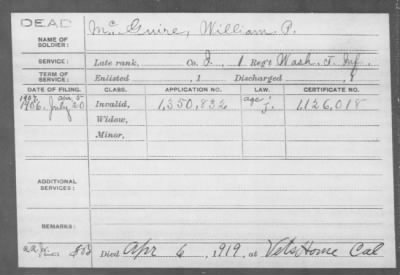 DEAD
NAME OF SOLDIER: McGuire, William P.
SERVICE: Late rank, Co. I, 1 Reg't Wash. T. Inf.
TERM OF SERVICE: Enlisted , 1 Discharged , 1
DATE OF FILING. CLASS. APPLICATION NO. LAW. CERTIFICATE NO.
1906. July 20 Invalid, 1,350,832 age J. 1,126,018
Widow,
Minor,
ADDITIONAL SERVICES:
REMARKS:
Died Apr 6, 1919, at Vets Home Cal